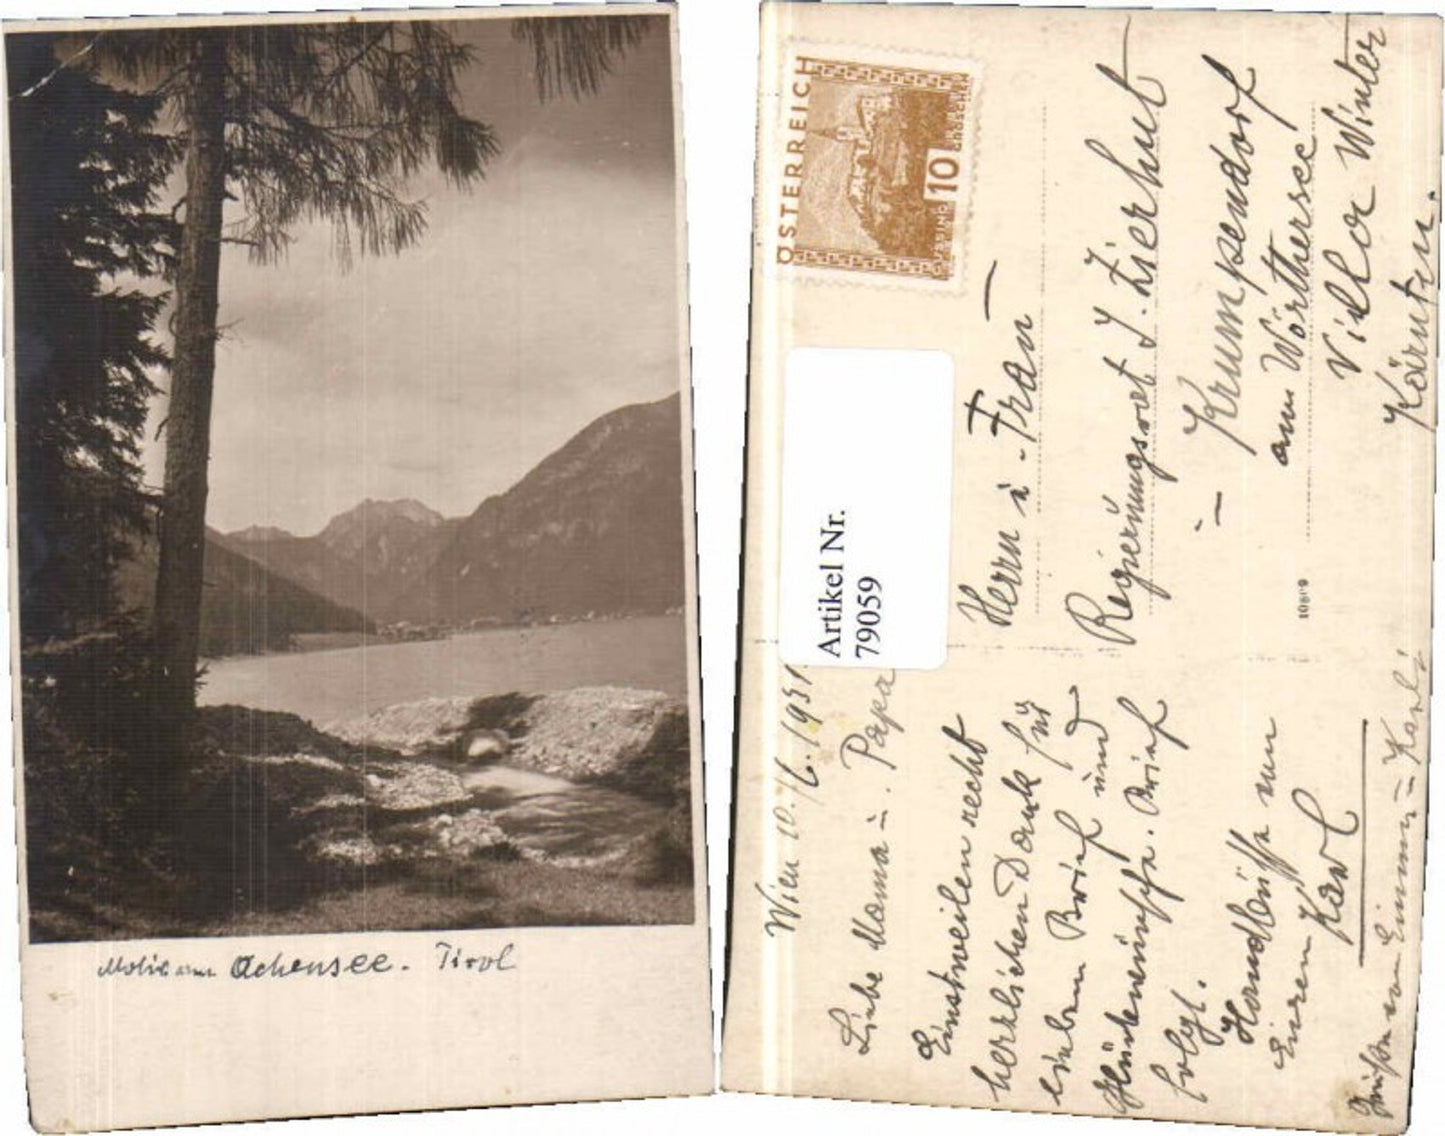 Motiv am Achensee. Tirol
ÖSTERREICH
10
GROSCHEN
GÜSSING
Artikel Nr.
79059
Wien 10./6. 1931
Liebe Mama u. Papa
Einstweilen recht
herzlichen Dank für
lieben Brief und
Glückwünsche. Brief
folgt.
Handküsse von
Eurem
Karl
Grüße von
Herrn u. Frau
Regierungsrat J. Zierhut
Krumpendorf
am Wörthersee
Villa Winter
Kärnten.
10809